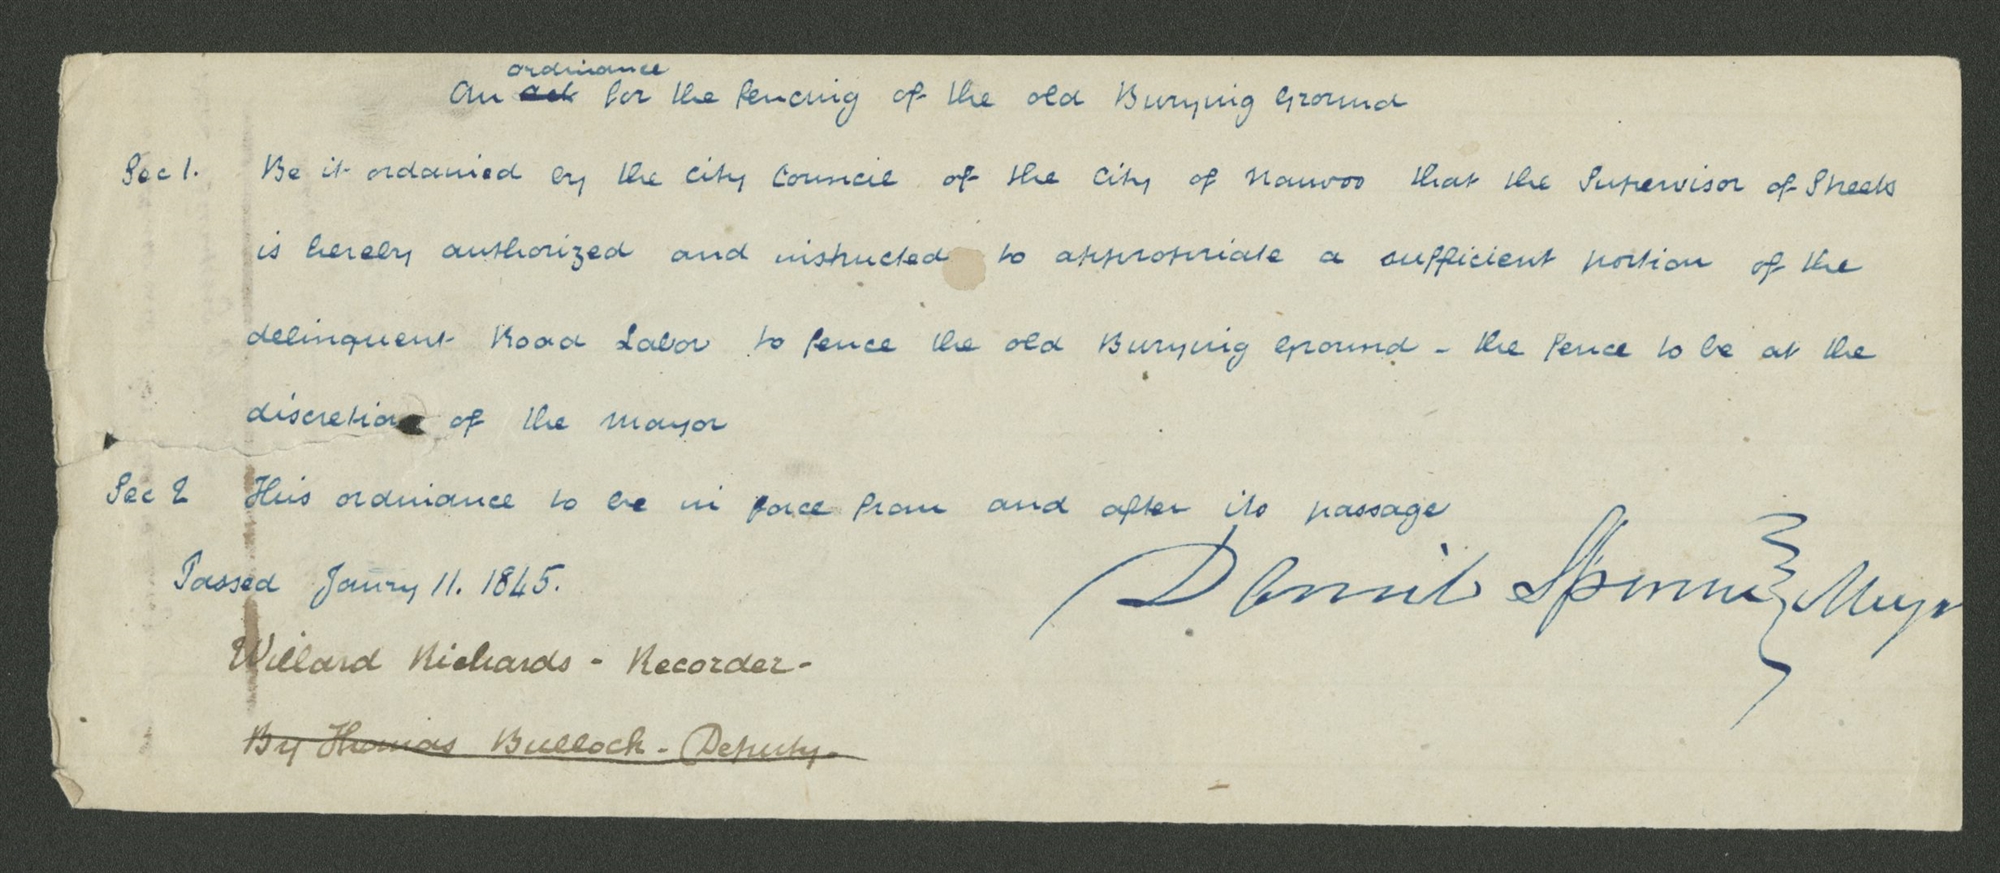 ordinance
An act for the fencing of the old Burying Ground
Sec 1. Be it ordained by the City Council of the City of Nauvoo that the Supervisor of Streets
is hereby authorized and instructed to appropriate a sufficient portion of the
delinquent Road Labor to fence the old Burying Ground - the fence to be at the
discretion of the Mayor
Sec 2 This ordinance to be in force from and after its passage
Passed Janry 11. 1845.
Daniel Spencer Mayor
Willard Richards - Recorder -
By Thomas Bullock - Deputy -